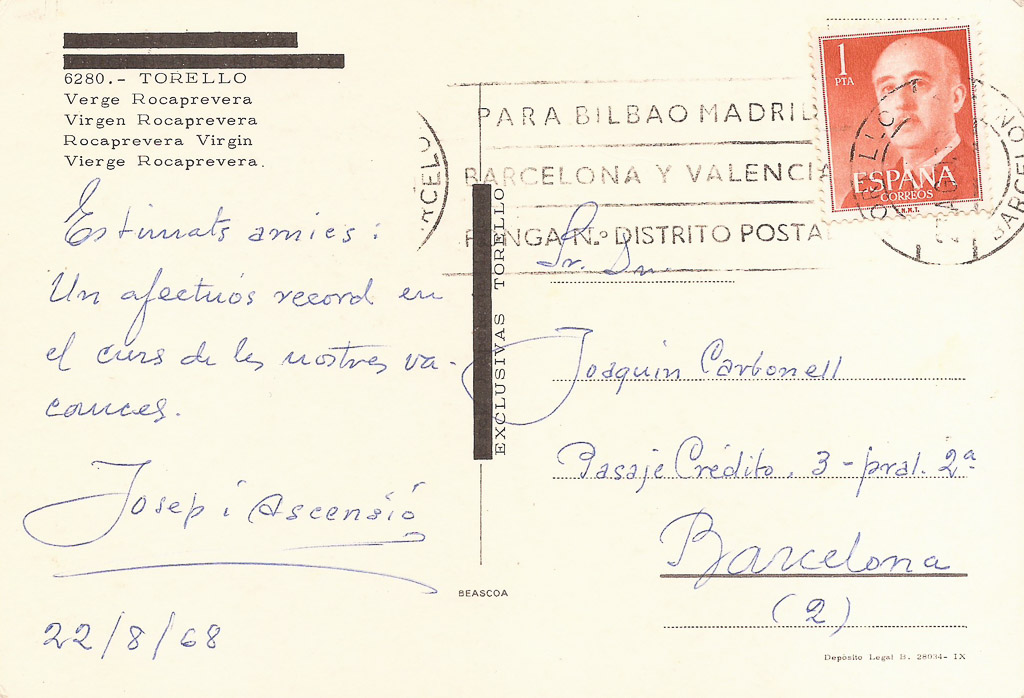 6280.- TORELLO
Verge Rocaprevera
Virgen Rocaprevera
Rocaprevera Virgin
Vierge Rocaprevera.
Estimats amics:
Un afectuós record en
el curs de les nostres va-
cances.
Josep i Ascensió
22/8/68
EXCLUSIVAS TORELLO
BEASCOA
PARA BILBAO MADRID
BARCELONA Y VALENCIA
PONGA N.º DISTRITO POSTAL
1
PTA
ESPAÑA
CORREOS
F.N.M.T.
Sr. Dn.
Joaquin Carbonell
Pasaje Crédito. 3 - pral. 2ª
Barcelona
(2)
Depósito Legal B. 28034- IX